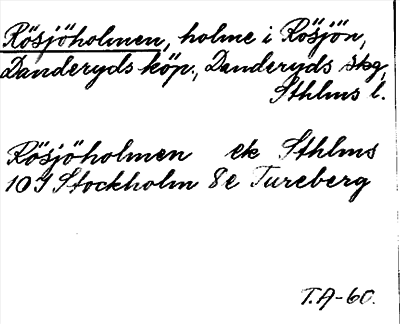 Rösjöholmen, holme i Rösjön,
Danderyds köp., Danderyds skg,
Sthlms l.
Rösjöholmen ek Sthlms
10I Stockholm 8e Tureberg
T.A-60.